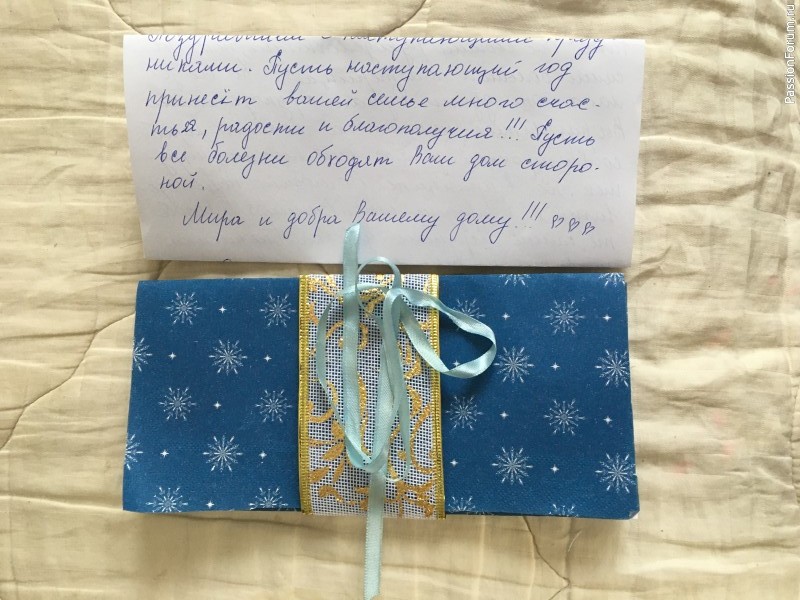 никами. Пусть наступающий год
принесёт вашей семье много счас-
тья, радости и благополучия!!! Пусть
все болезни обходят Ваш дом сторо-
ной.
Мира и добра Вашему дому!!!
PassionForum.ru